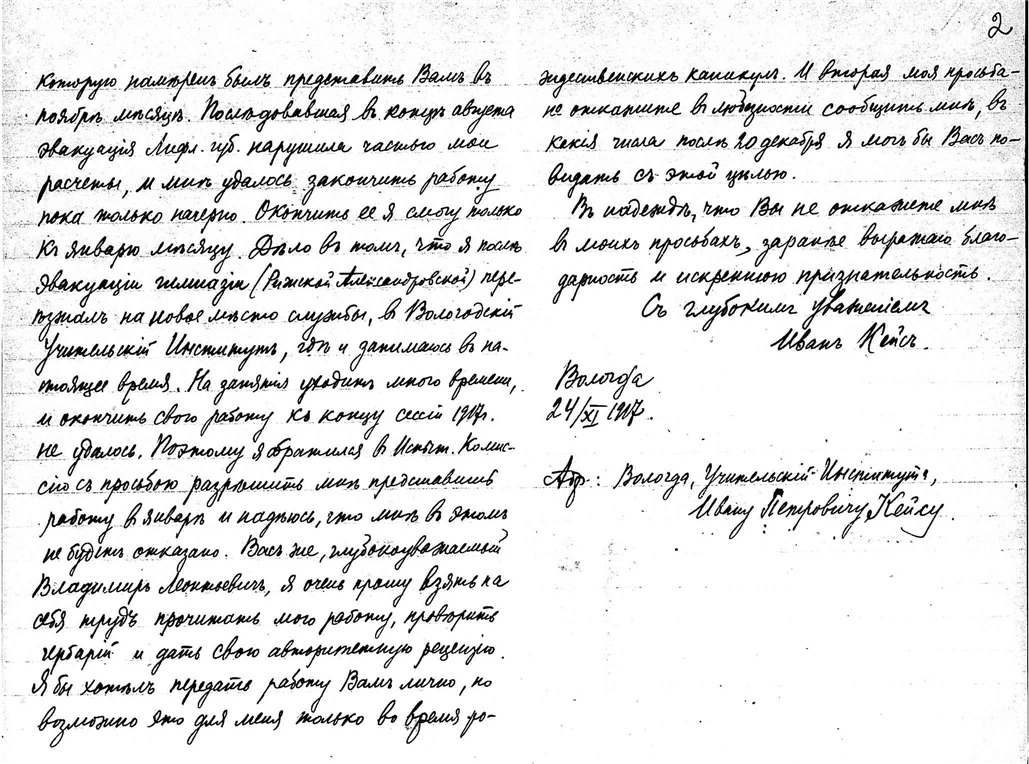 2
которую намѣренъ былъ представить Вамъ въ
ноябрѣ мѣсяцѣ. Послѣдовавшая въ концѣ августа
эвакуація Лифл. губ. нарушила частью мои
расчеты, и мнѣ удалось закончить работу
пока только начерно. Окончить ее я смогу только
къ январю мѣсяцу. Дѣло въ томъ, что я послѣ
эвакуаціи гимназіи (Рижской Александровской) пере-
ѣхалъ на новое мѣсто службы, въ Вологодскій
Учительскій Институтъ, гдѣ и занимаюсь въ на-
стоящее время. На занятія уходитъ много времени,
и окончить свою работу къ концу сессіи 1917г.
не удалось. Поэтому я обратился въ Испыт. Комис-
сію съ просьбою разрѣшить мнѣ представить
работу въ январѣ и надѣюсь, что мнѣ въ этомъ
не будетъ отказано. Васъ же, глубокоуважаемый
Владимиръ Леонтьевичъ, я очень прошу взять на
себя трудъ прочитать мою работу, провѣрить
гербарій и дать свою авторитетную рецензію.
Я бы хотѣлъ передать работу Вамъ лично, но
возможно это для меня только во время ро-
ждественскихъ каникулъ. И вторая моя просьба-
не откажите въ любезности сообщить мнѣ, въ
какія числа послѣ 20 декабря я могъ бы Васъ по-
видать съ этой цѣлью.
Въ надеждѣ, что Вы не откажете мнѣ
въ моихъ просьбахъ, заранѣе выражаю благо-
дарность и искреннюю признательность.
Съ глубокимъ уваженіемъ
Иванъ Кейсъ.
Вологда
24/XI 1917.
Адр: Вологда, Учительскій Институтъ,
Ивану Петровичу Кейсу.